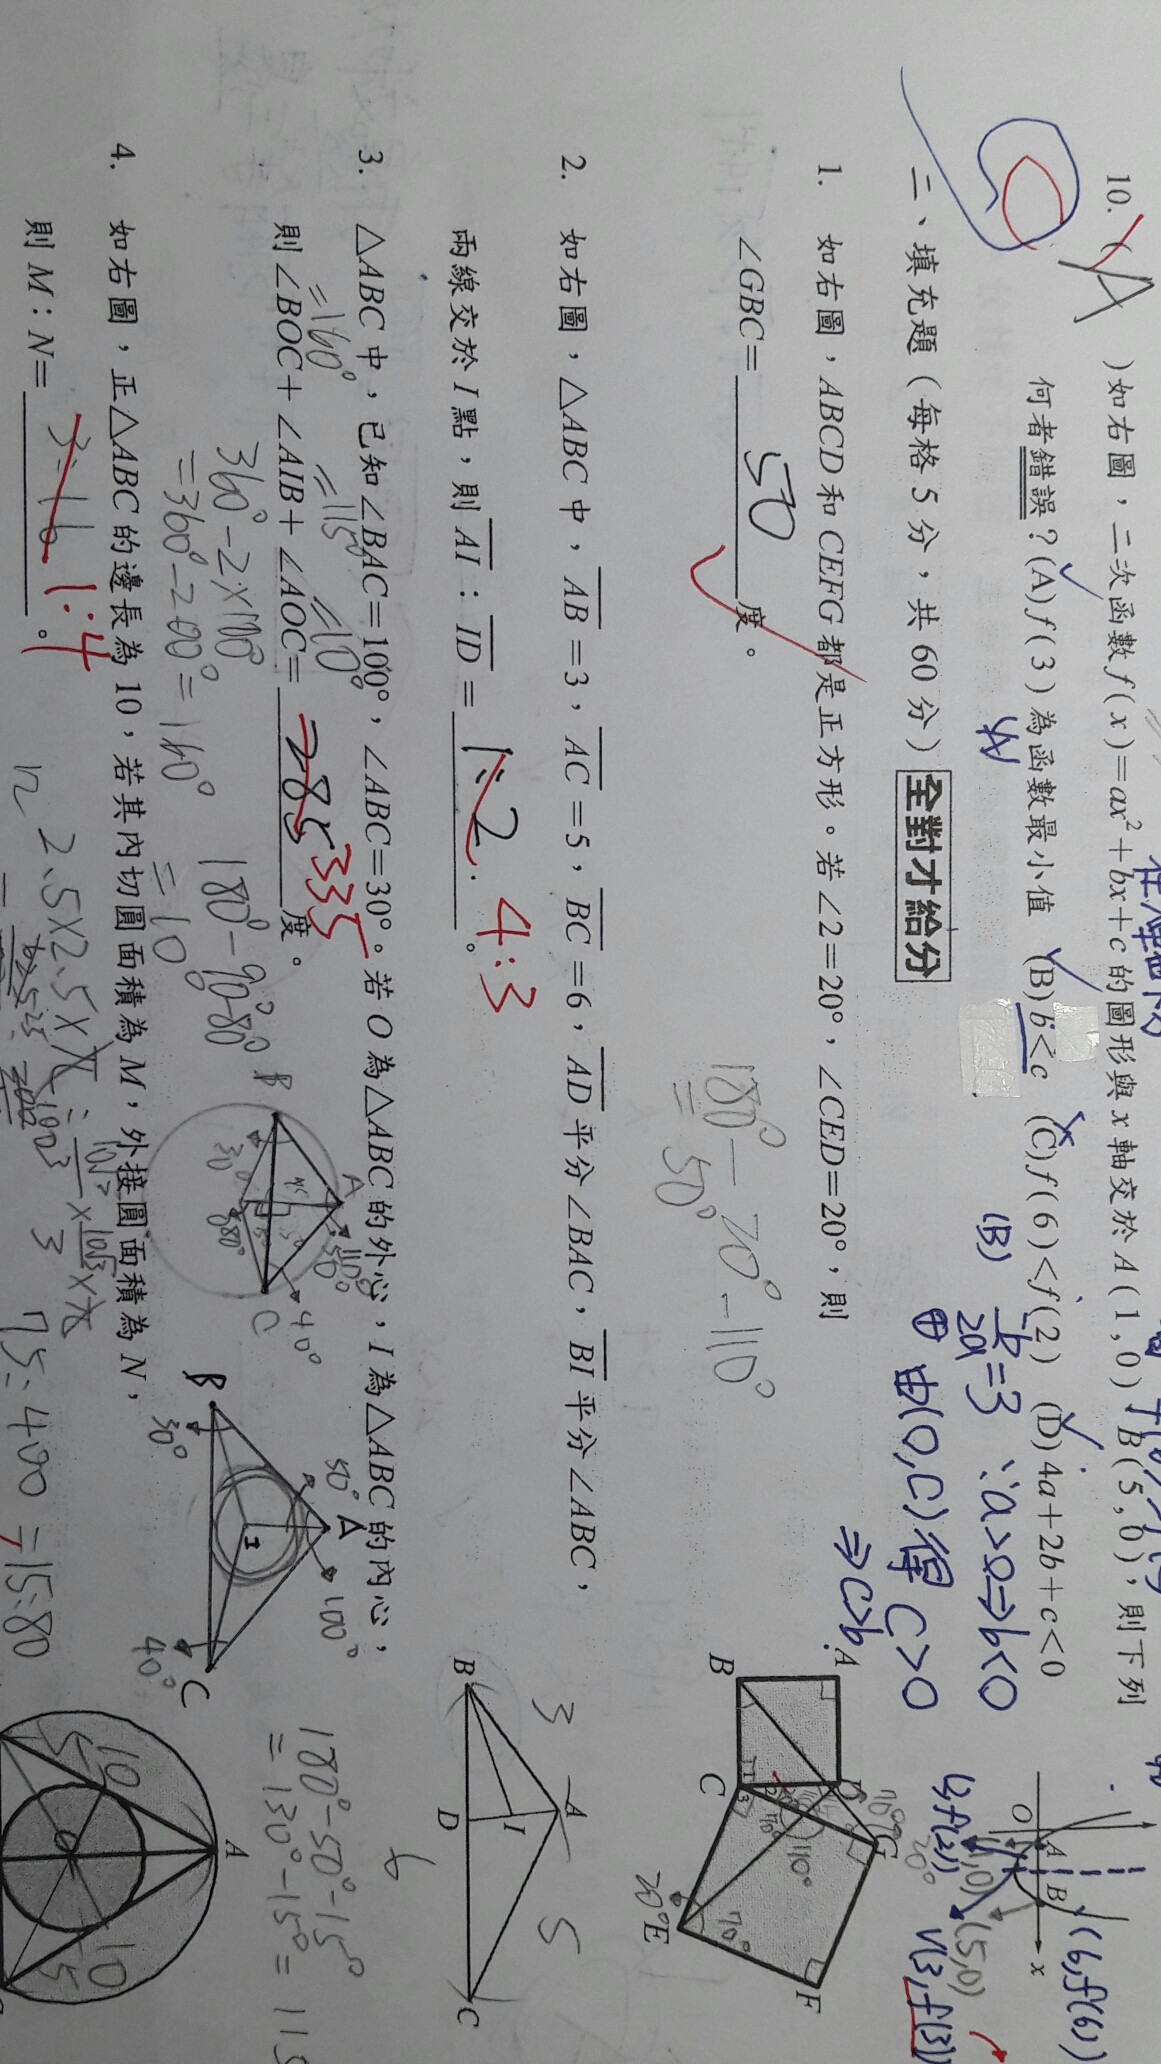 10. ( A )如右圖，二次函數 f(x)=ax²+bx+c 的圖形與 x 軸交於 A(1,0)、B(5,0)，則下列
何者錯誤？(A) f(3)為函數最小值 (B) b<c (C) f(6)<f(2) (D) 4a+2b+c<0
(B) -b/2a=3 ∵a>0⇒b<0
由(0,C)得 C>0
⇒C>b
O A B x
(6,f(6))
(1,0) (5,0)
(2,f(2)) V(3,f(3))
二、填充題(每格 5 分，共 60 分) 全對才給分
1. 如右圖，ABCD 和 CEFG 都是正方形。若∠2=20°，∠CED=20°，則
∠GBC= 50 度。
180°-70°-110°
=50°
A
B
C
D
G
E
F
1 2 3
70°
20°
110°
70°
20°
70°
2. 如右圖，△ABC 中，AB=3，AC=5，BC=6，AD 平分∠BAC，BI 平分∠ABC，
兩線交於 I 點，則 AI：ID= 1:2 。
4:3
A
B
D
I
C
3
5
6
3. △ABC 中，已知∠BAC=100°，∠ABC=30°。若 O 為△ABC 的外心，I 為△ABC 的內心，
=160° =115° =10°
則∠BOC+∠AIB+∠AOC= 285 度。
335
360°-2×100°
=360°-200°=160°
180°-90°-80°
=10°
B
A
C
30°
80°
40°
B
A
I
C
30°
50°
100°
40°
180°-50°-15°
=130°-15°=115
4. 如右圖，正△ABC 的邊長為 10，若其內切圓面積為 M，外接圓面積為 N，
則 M：N= 3:16 。
1:4
75:400=15:80
A
O
10
10
5
5